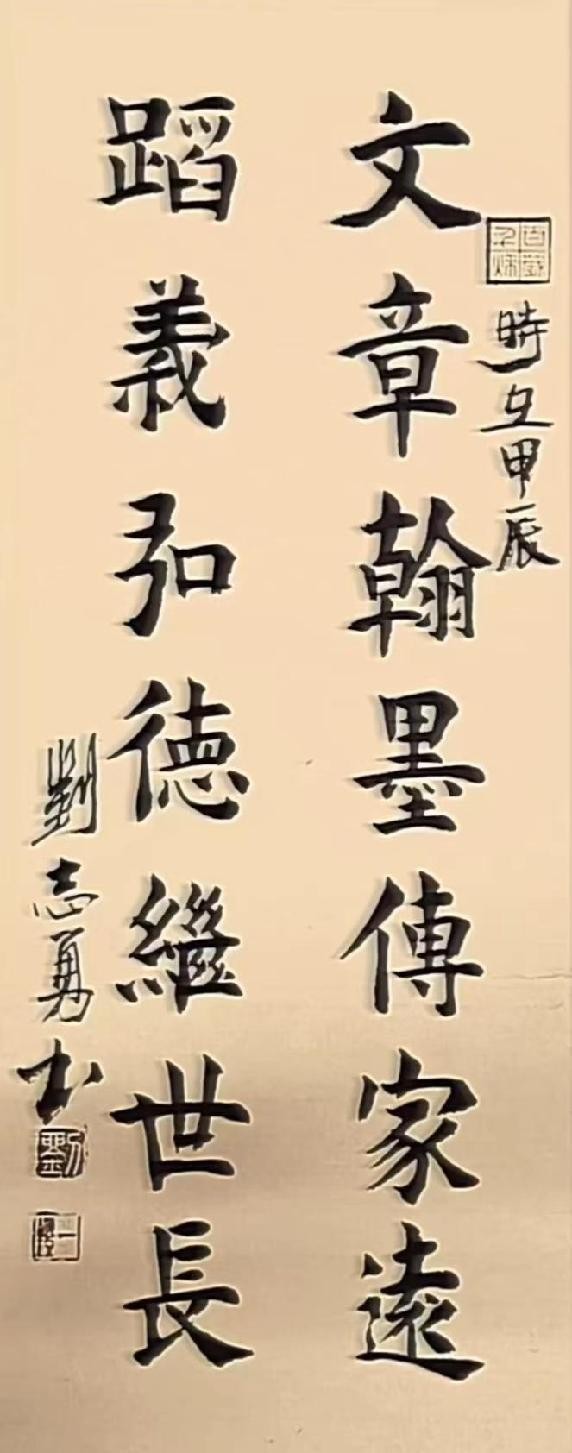 文章翰墨傳家遠
蹈義弘德繼世長
時在甲辰
劉志勇书